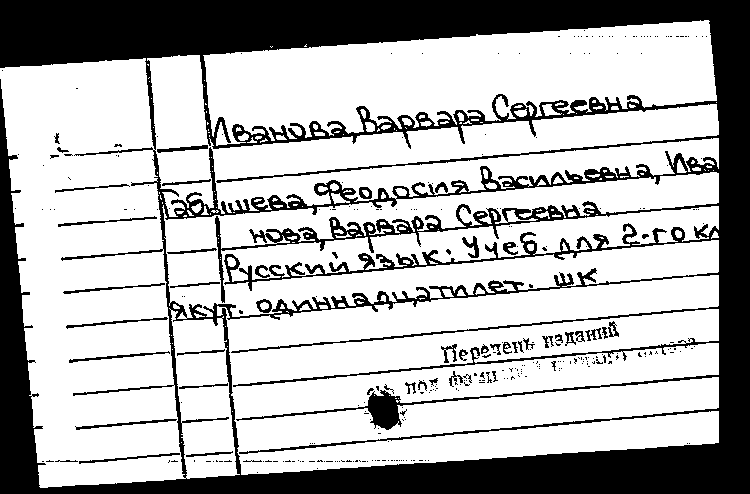 Иванова, Варвара Сергеевна.
Габышева, Феодосия Васильевна, Ива
нова, Варвара Сергеевна.
Русский язык: Учеб. для 2-го кл
якут. одиннадцатилет. шк.
Перечень изданий
под